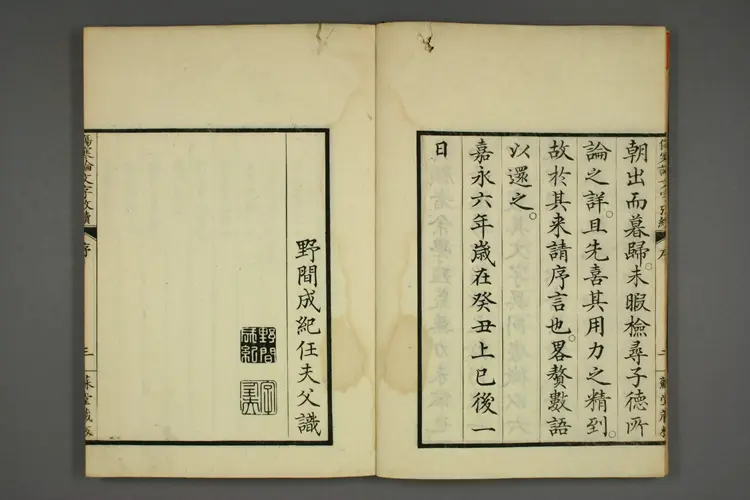 朝出而暮歸。未暇檢尋子德所
論之詳。且先喜其用力之精到。
故於其来請序言也。畧贅數語
以還之。
嘉永六年歲在癸丑上巳後一
日
野間成紀任夫父識
野間
成紀
傷寒論文字攷續
序
三